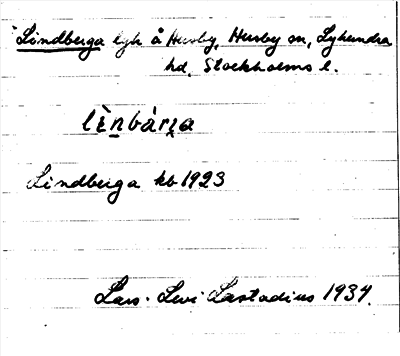 Lindberga lgh å Husby, Husby sn, Lyhundra
hd, Stockholms l.
lèṉbárɪ̯a
Lindberga kb 1923
Lars-Levi Læstadius 1934.